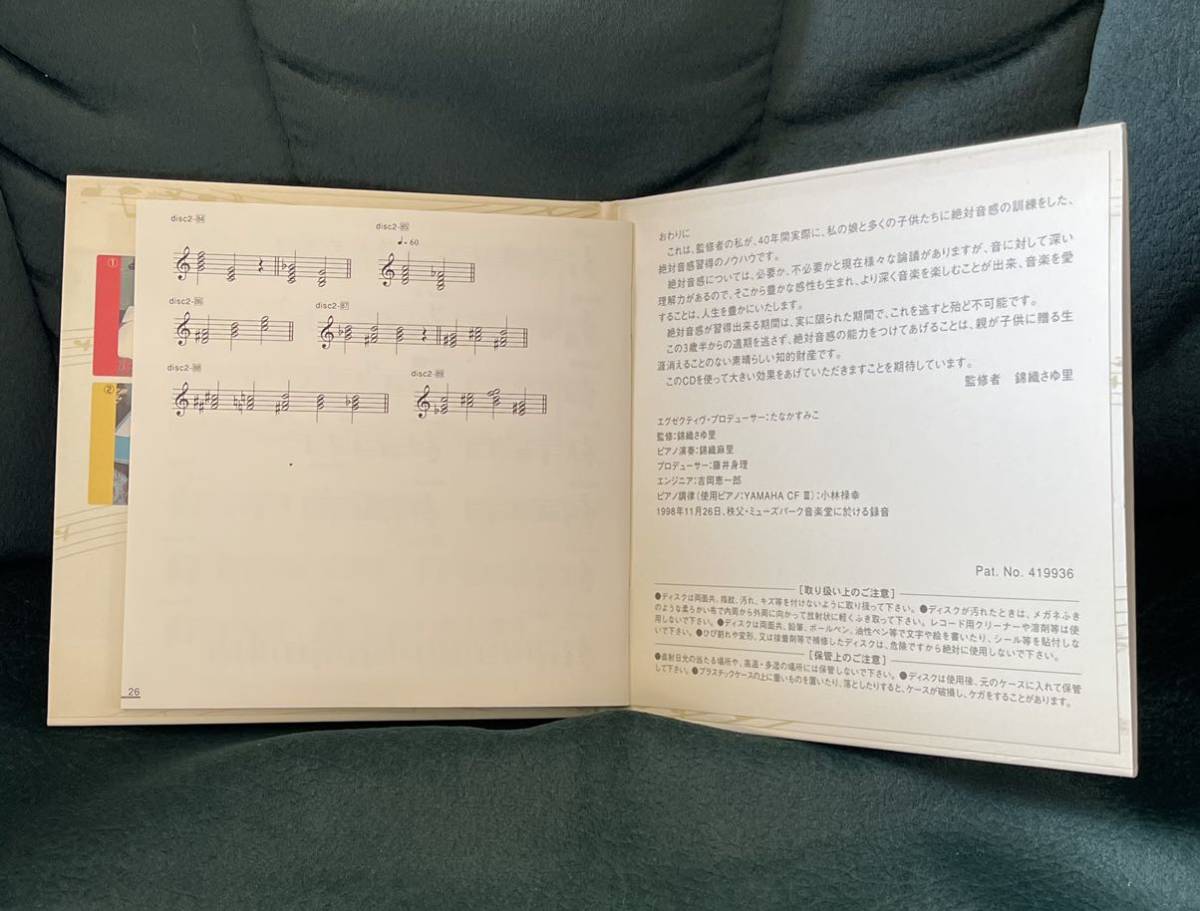 ①
①
②
disc2-84
disc2-85
♩=60
disc2-86
disc2-87
disc2-88
disc2-89
26
おわりに
これは、監修者の私が、40年間実際に、私の娘と多くの子供たちに絶対音感の訓練をした、
絶対音感習得のノウハウです。
絶対音感については、必要か、不必要かと現在様々な論議がありますが、音に対して深い
理解力があるので、そこから豊かな感性も生まれ、より深く音楽を楽しむことが出来、音楽を愛
することは、人生を豊かにいたします。
絶対音感が習得出来る期間は、実に限られた期間で、これを逃すと殆ど不可能です。
この3歳半からの適期を逃さず、絶対音感の能力をつけてあげることは、親が子供に贈る生
涯消えることのない素晴らしい知的財産です。
このCDを使って大きい効果をあげていただきますことを期待しています。
監修者 錦織さゆ里
エグゼクティヴ・プロデューサー:たなかすみこ
監修:錦織さゆ里
ピアノ演奏:錦織麻里
プロデューサー:藤井身理
エンジニア:吉岡憲一郎
ピアノ調律(使用ピアノ:YAMAHA CF Ⅲ):小林禄幸
1998年11月26日、秩父・ミューズパーク音楽堂に於ける録音
Pat. No. 419936
[取り扱い上のご注意]
●ディスクは両面共、指紋、汚れ、キズ等を付けないように取り扱って下さい。●ディスクが汚れたときは、メガネふき
のような柔らかい布で内周から外周に向かって放射状に軽くふき取って下さい。レコード用クリーナーや溶剤等は使
用しないで下さい。●ディスクは両面共、鉛筆、ボールペン、油性ペン等で文字や絵を書いたり、シール等を貼付しな
いで下さい。●ひび割れや変形、又は接着剤等で補修したディスクは、危険ですから絶対に使用しないで下さい。
[保管上のご注意]
●直射日光の当たる場所や、高温・多湿の場所には保管しないで下さい。●ディスクは使用後、元のケースに入れて保管
して下さい。●プラスチックケースの上に重いものを置いたり、落としたりすると、ケースが破損し、ケガをすることがあります。